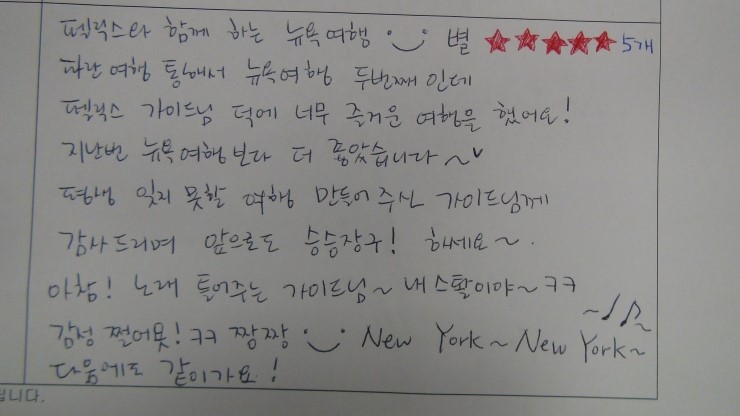 펠릭스와 함께 하는 뉴욕여행 별 ★★★★★ 5개
파란여행 통해서 뉴욕여행 두번째인데
펠릭스 가이드님 덕에 너무 즐거운 여행을 했어요!
지난번 뉴욕여행보다 더 좋았습니다~
평생 잊지 못할 여행 만들어 주신 가이드님께
감사드리며 앞으로도 승승장구! 하세요~.
아참! 노래 틀어주는 가이드님~ 내스퇄이야~ㅋㅋ
감성 쩔어욧! ㅋㅋ 짱짱 New York~ New York~
다음에도 같이가요!
니다.